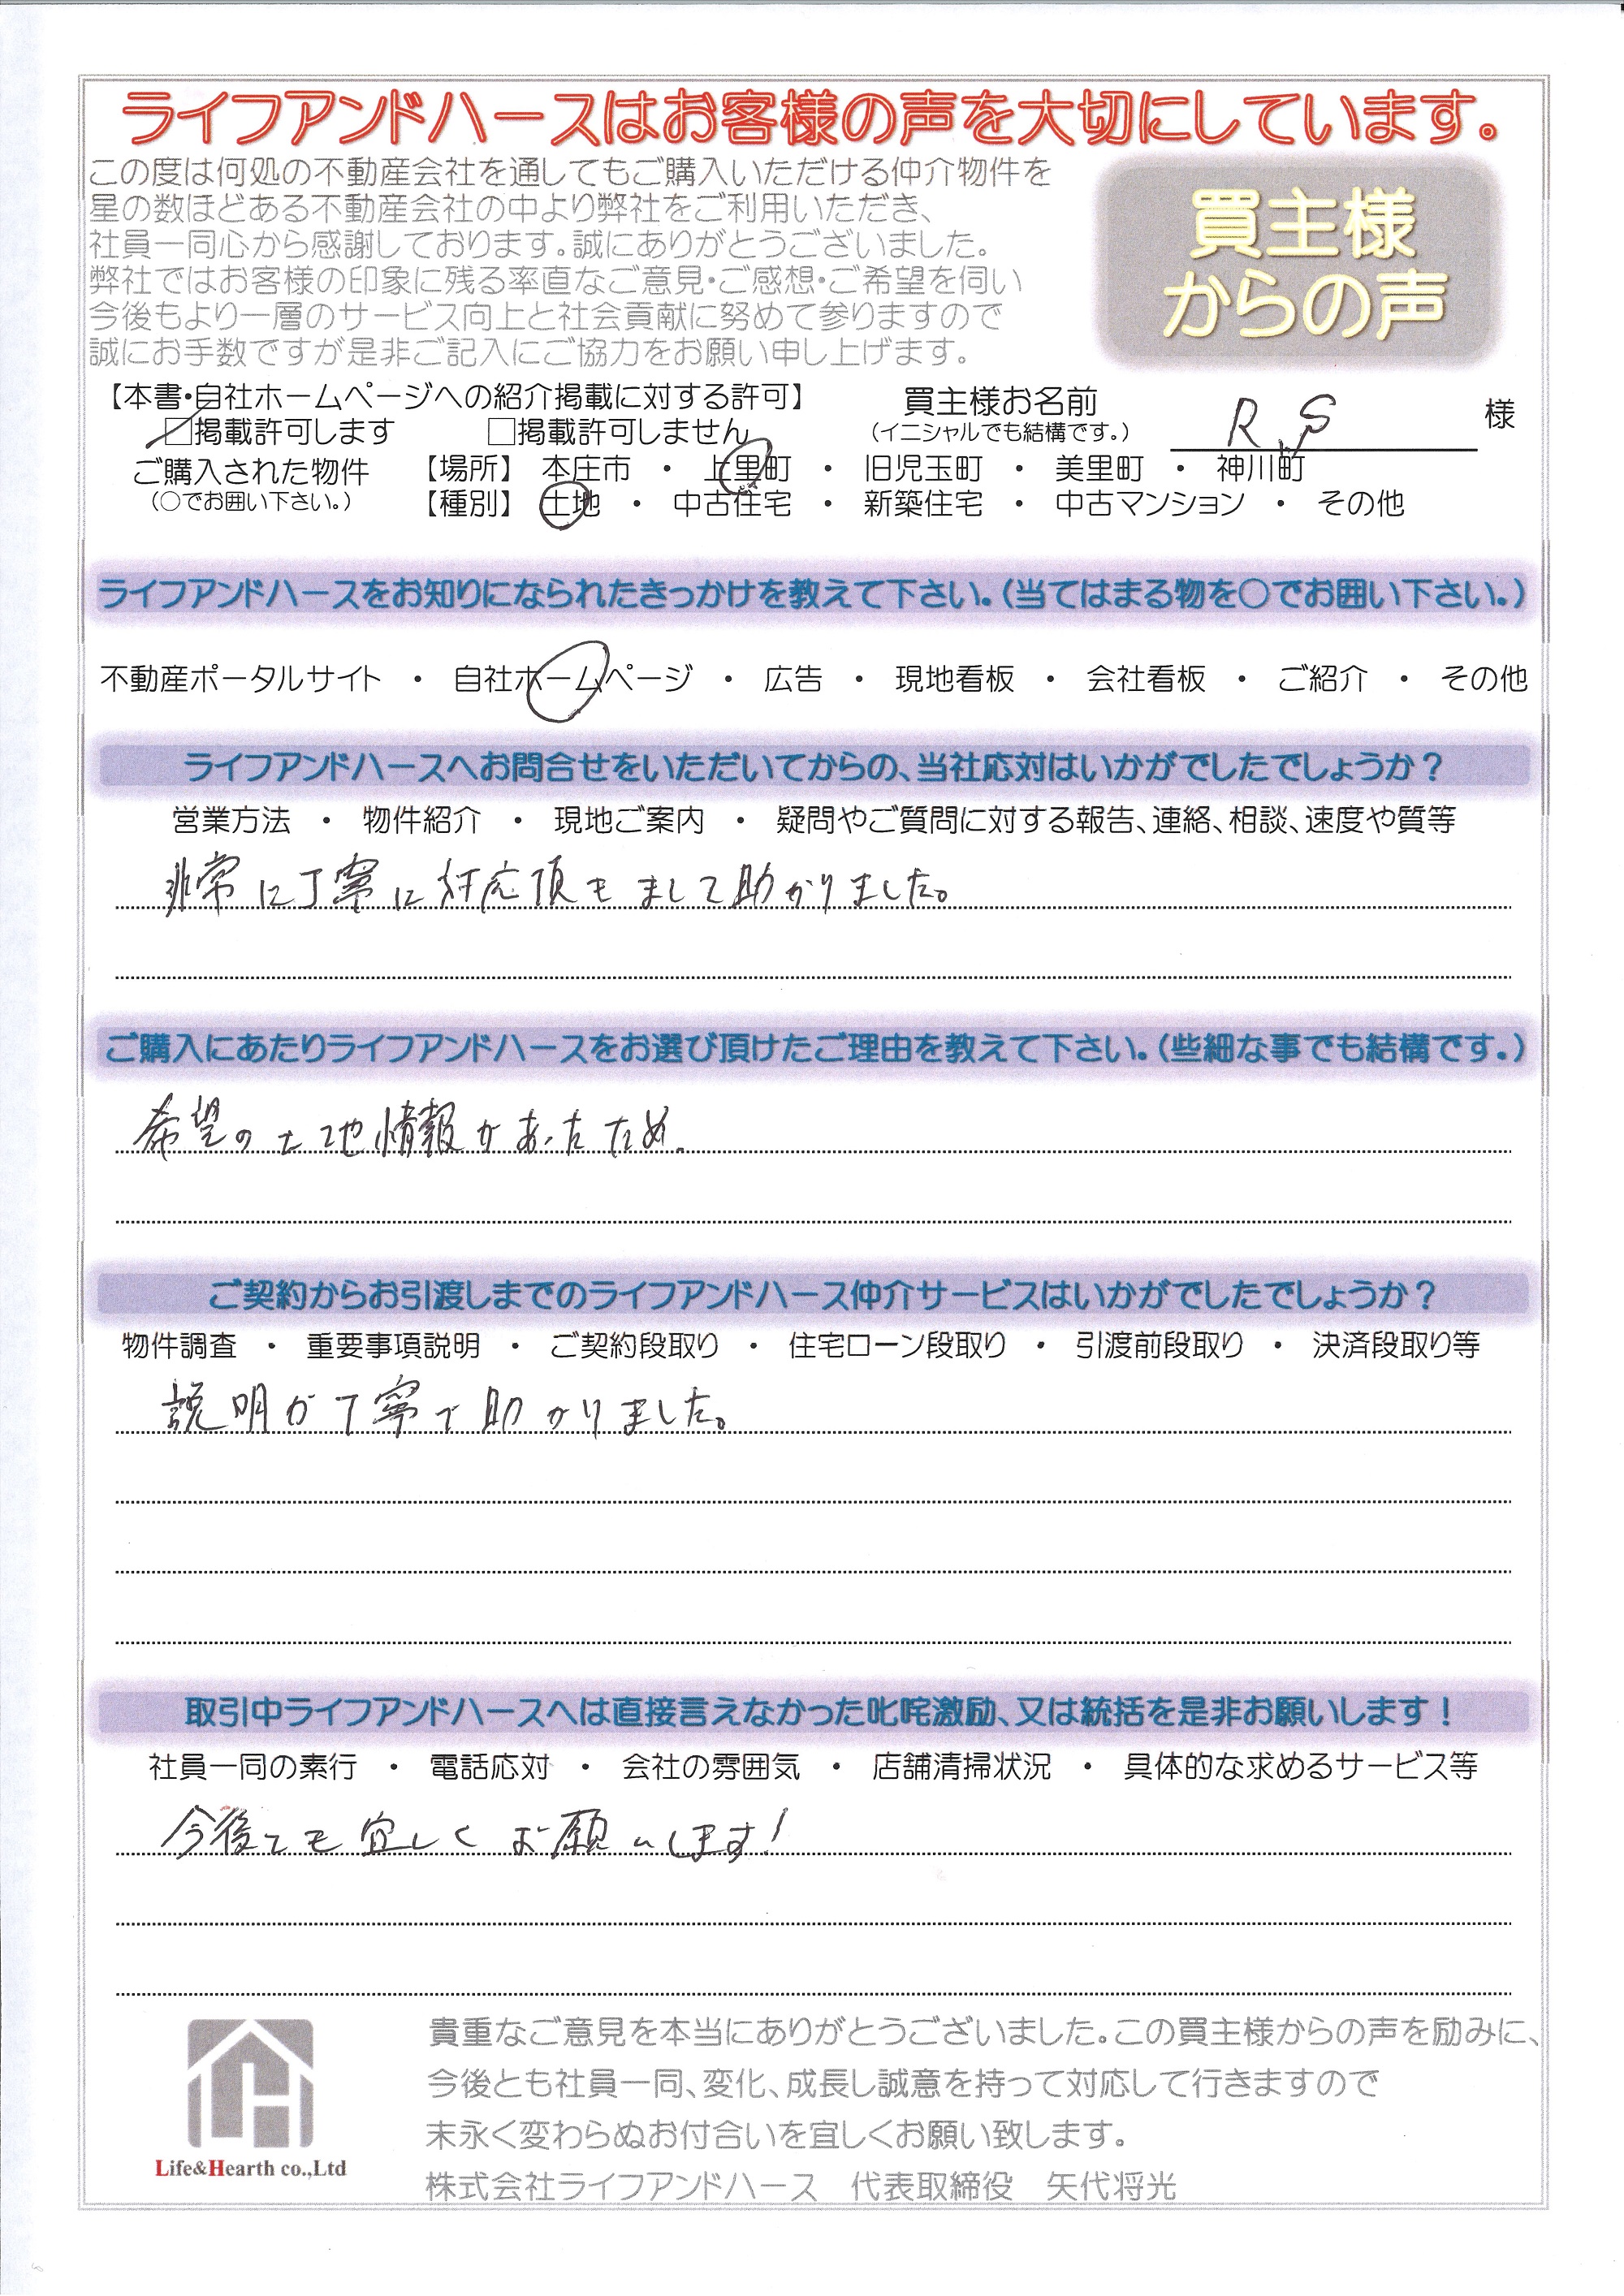 ライフアンドハースはお客様の声を大切にしています。
この度は何処の不動産会社を通してもご購入いただける仲介物件を
星の数ほどある不動産会社の中より弊社をご利用いただき、
社員一同心から感謝しております。誠にありがとうございました。
弊社ではお客様の印象に残る率直なご意見・ご感想・ご希望を伺い
今後もより一層のサービス向上と社会貢献に努めて参りますので
誠にお手数ですが是非ご記入にご協力をお願い申し上げます。
買主様
からの声
【本書・自社ホームページへの紹介掲載に対する許可】
□掲載許可します □掲載許可しません
買主様お名前
(イニシャルでも結構です。)
R.S 様
ご購入された物件 【場所】 本庄市 ・ 上里町 ・ 旧児玉町 ・ 美里町 ・ 神川町
(○でお囲い下さい。) 【種別】 土地 ・ 中古住宅 ・ 新築住宅 ・ 中古マンション ・ その他
ライフアンドハースをお知りになられたきっかけを教えて下さい。(当てはまる物を○でお囲い下さい。)
不動産ポータルサイト ・ 自社ホームページ ・ 広告 ・ 現地看板 ・ 会社看板 ・ ご紹介 ・ その他
ライフアンドハースへお問合せをいただいてからの、当社応対はいかがでしたでしょうか?
営業方法 ・ 物件紹介 ・ 現地ご案内 ・ 疑問やご質問に対する報告、連絡、相談、速度や質等
非常に丁寧に対応頂きまして助かりました。
ご購入にあたりライフアンドハースをお選び頂けたご理由を教えて下さい。(些細な事でも結構です。)
希望の土地情報があったため。
ご契約からお引渡しまでのライフアンドハース仲介サービスはいかがでしたでしょうか?
物件調査 ・ 重要事項説明 ・ ご契約段取り ・ 住宅ローン段取り ・ 引渡前段取り ・ 決済段取り等
説明が丁寧で助かりました。
取引中ライフアンドハースへは直接言えなかった叱咤激励、又は統括を是非お願いします!
社員一同の素行 ・ 電話応対 ・ 会社の雰囲気 ・ 店舗清掃状況 ・ 具体的な求めるサービス等
今後とも宜しくお願いします!
貴重なご意見を本当にありがとうございました。この買主様からの声を励みに、
今後とも社員一同、変化、成長し誠意を持って対応して行きますので
末永く変わらぬお付合いを宜しくお願い致します。
Life&Hearth co.,Ltd
株式会社ライフアンドハース 代表取締役 矢代将光